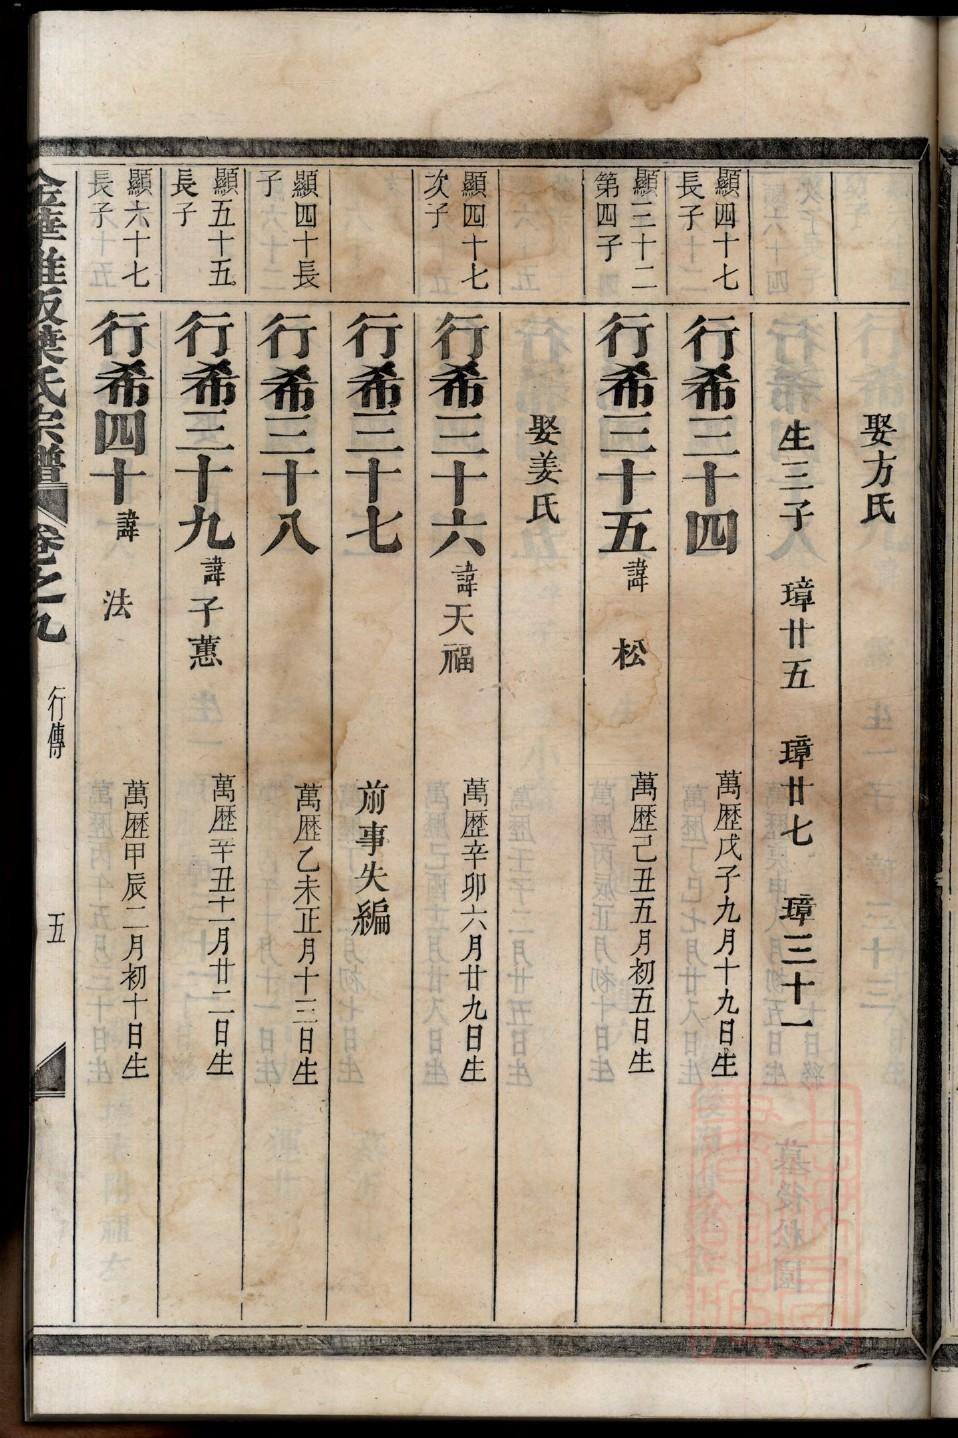 娶方氏
生三子 璋廿五 璋廿七 璋三十一
顯四十七
長子
行希三十四
萬歷戊子九月十九日生
顯三十二
第四子
行希三十五 諱 松
萬歷己丑五月初五日生
娶姜氏
顯四十七
次子
行希三十六 諱天福
萬歷辛卯六月廿九日生
行希三十七
前事失編
顯四十長
子
行希三十八
萬歷乙未正月十三日生
顯五十五
長子
行希三十九 諱子蕙
萬歷辛丑十二月廿二日生
顯六十七
長子
行希四十 諱 法
萬歷甲辰二月初十日生
葉氏宗譜 卷之九 行傳 五